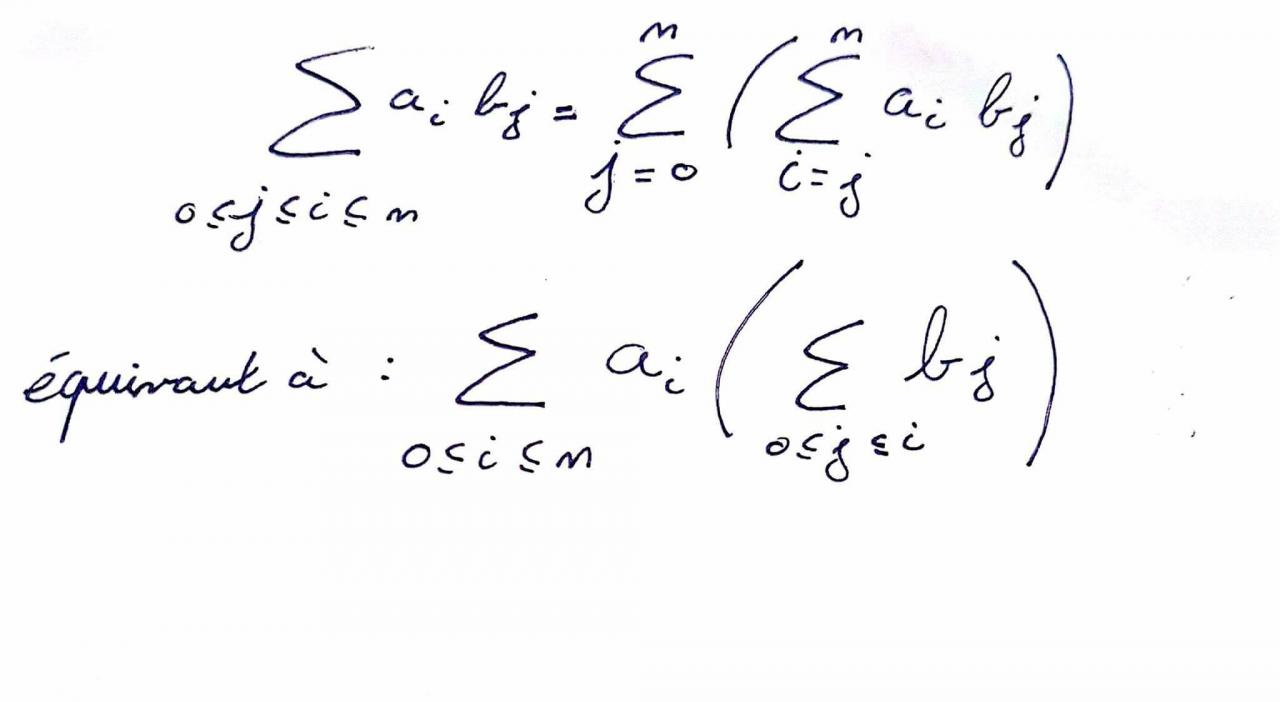 ∑_{0≤j≤i≤n} a_i b_j = ∑_{j=0}^{n} ( ∑_{i=j}^{n} a_i b_j )
équivaut à : ∑_{0≤i≤n} a_i ( ∑_{0≤j≤i} b_j )